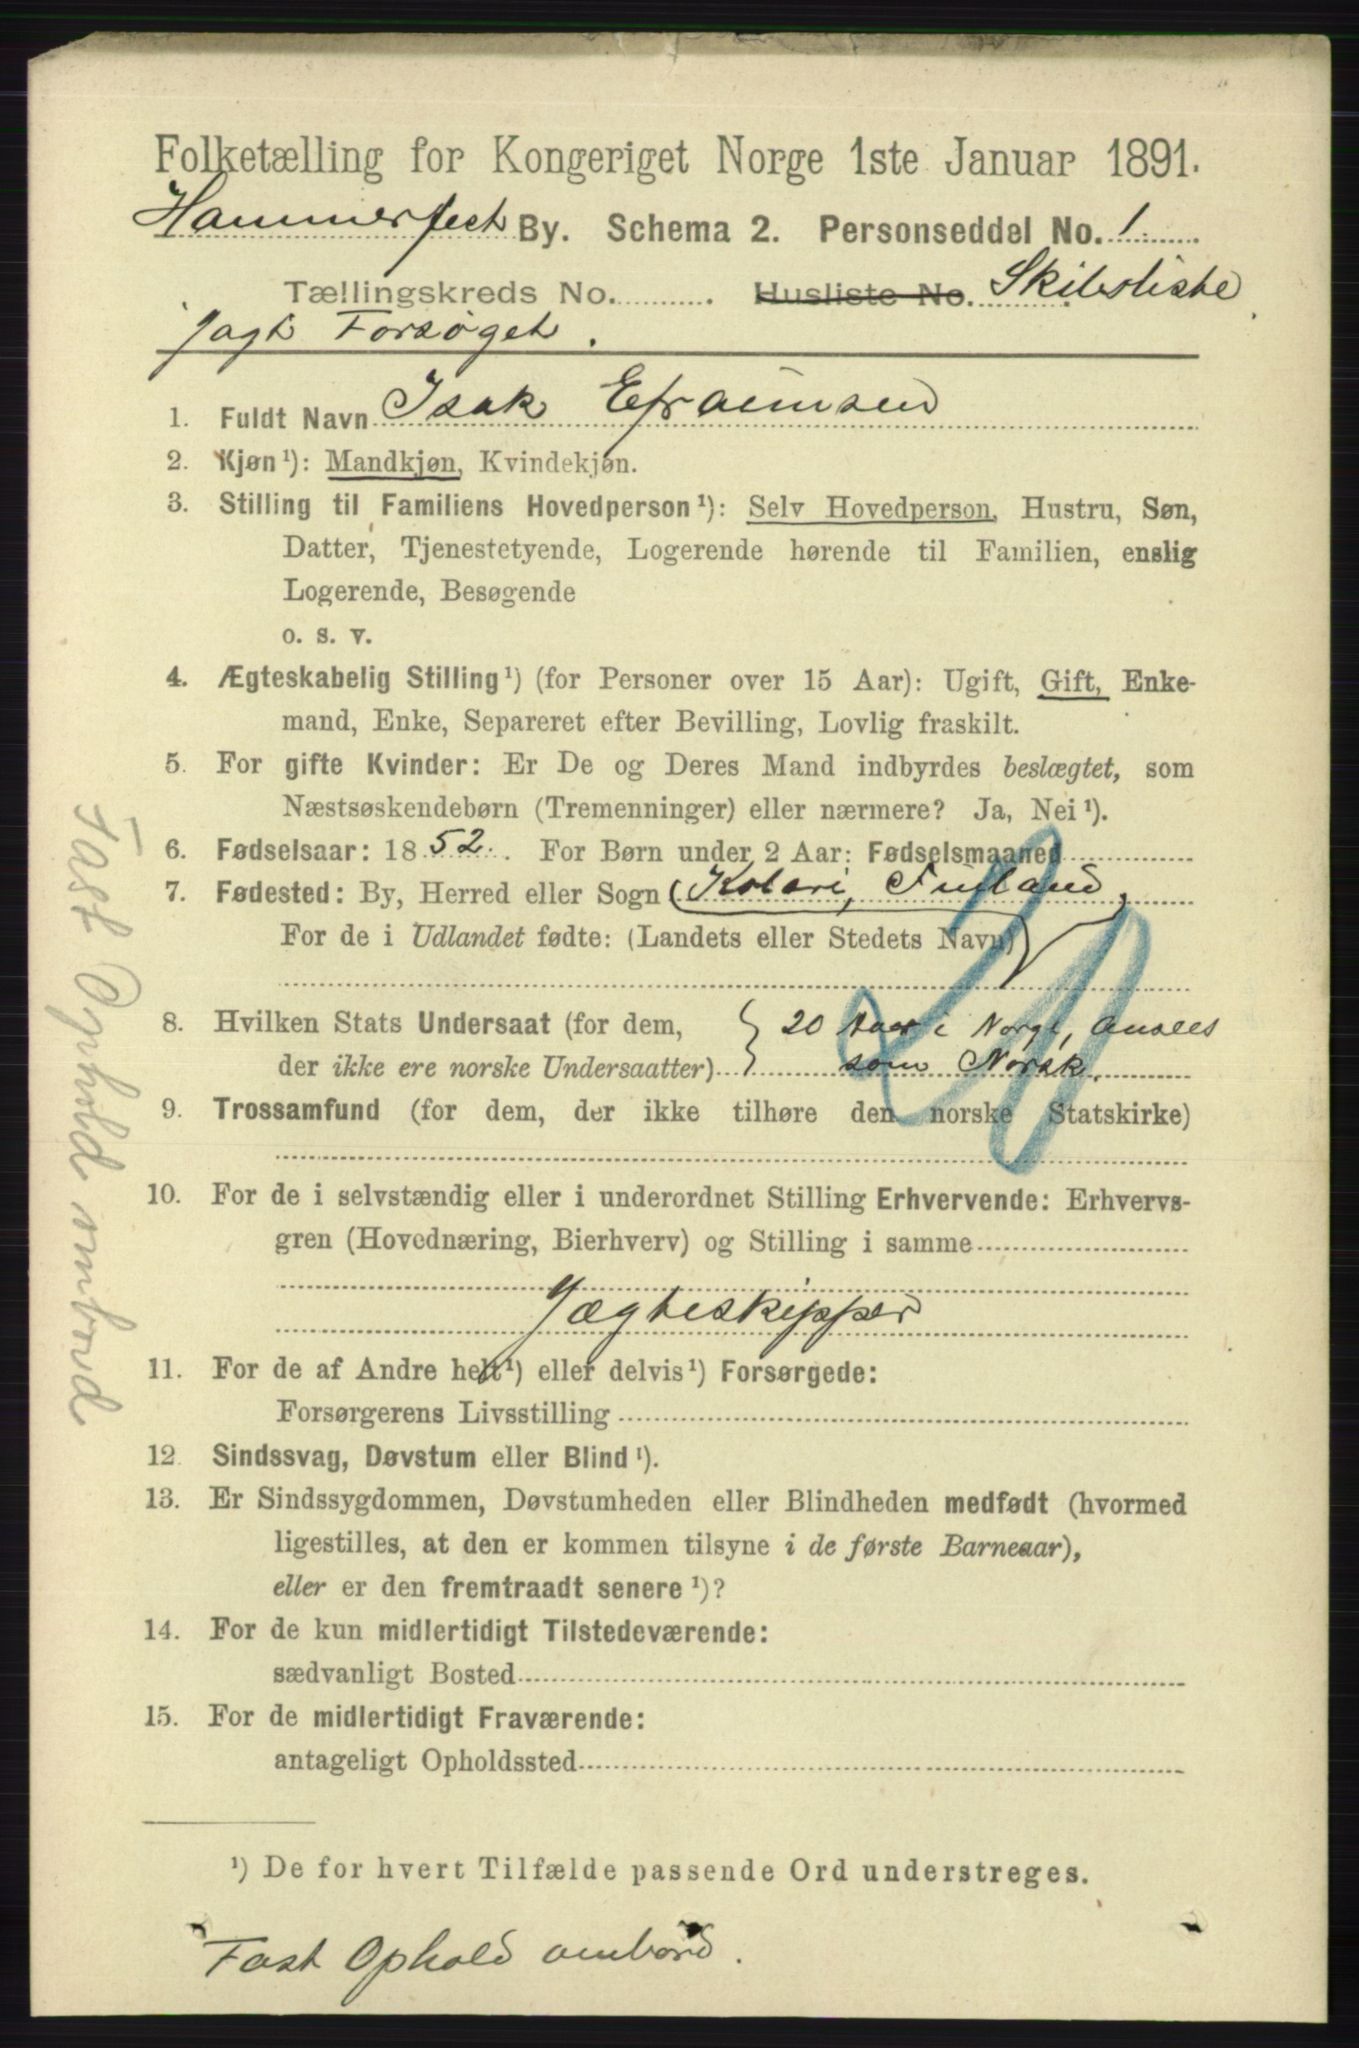 Folketælling for Kongeriget Norge 1ste Januar 1891.
Hammerfest By. Schema 2. Personseddel No. 1
Tællingskreds No. Husliste No. Skibsliste
Jagt Forsøget.
1. Fuldt Navn Isak Efraimsen
2. Kjøn ¹): Mandkjøn, Kvindekjøn.
3. Stilling til Familiens Hovedperson ¹): Selv Hovedperson, Hustru, Søn,
Datter, Tjenestetyende, Logerende hørende til Familien, enslig
Logerende, Besøgende
o. s. v.
4. Ægteskabelig Stilling ¹) (for Personer over 15 Aar): Ugift, Gift, Enke-
mand, Enke, Separeret efter Bevilling, Lovlig fraskilt.
5. For gifte Kvinder: Er De og Deres Mand indbyrdes beslægtet, som
Næstsøskendebørn (Tremenninger) eller nærmere? Ja, Nei ¹).
6. Fødselsaar: 1852. For Børn under 2 Aar: Fødselsmaaned
7. Fødested: By, Herred eller Sogn (Kolari, Finland,
For de i Udlandet fødte: (Landets eller Stedets Navn)
8. Hvilken Stats Undersaat (for dem, } 20 Aar i Norge, ansees
der ikke ere norske Undersaatter) som Norsk.
9. Trossamfund (for dem, der ikke tilhøre den norske Statskirke)
10. For de i selvstændig eller i underordnet Stilling Erhvervende: Erhvervs-
gren (Hovednæring, Bierhverv) og Stilling i samme
Jægteskipper
11. For de af Andre helt ¹) eller delvis ¹) Forsørgede:
Forsørgerens Livsstilling
12. Sindssvag, Døvstum eller Blind ¹).
13. Er Sindssygdommen, Døvstumheden eller Blindheden medfødt (hvormed
ligestilles, at den er kommen tilsyne i de første Barneaar),
eller er den fremtraadt senere ¹)?
14. For de kun midlertidigt Tilstedeværende:
sædvanligt Bosted
15. For de midlertidigt Fraværende:
antageligt Opholdssted
¹) De for hvert Tilfælde passende Ord understreges.
Fast Ophold ombord.
Fast Ophold ombord